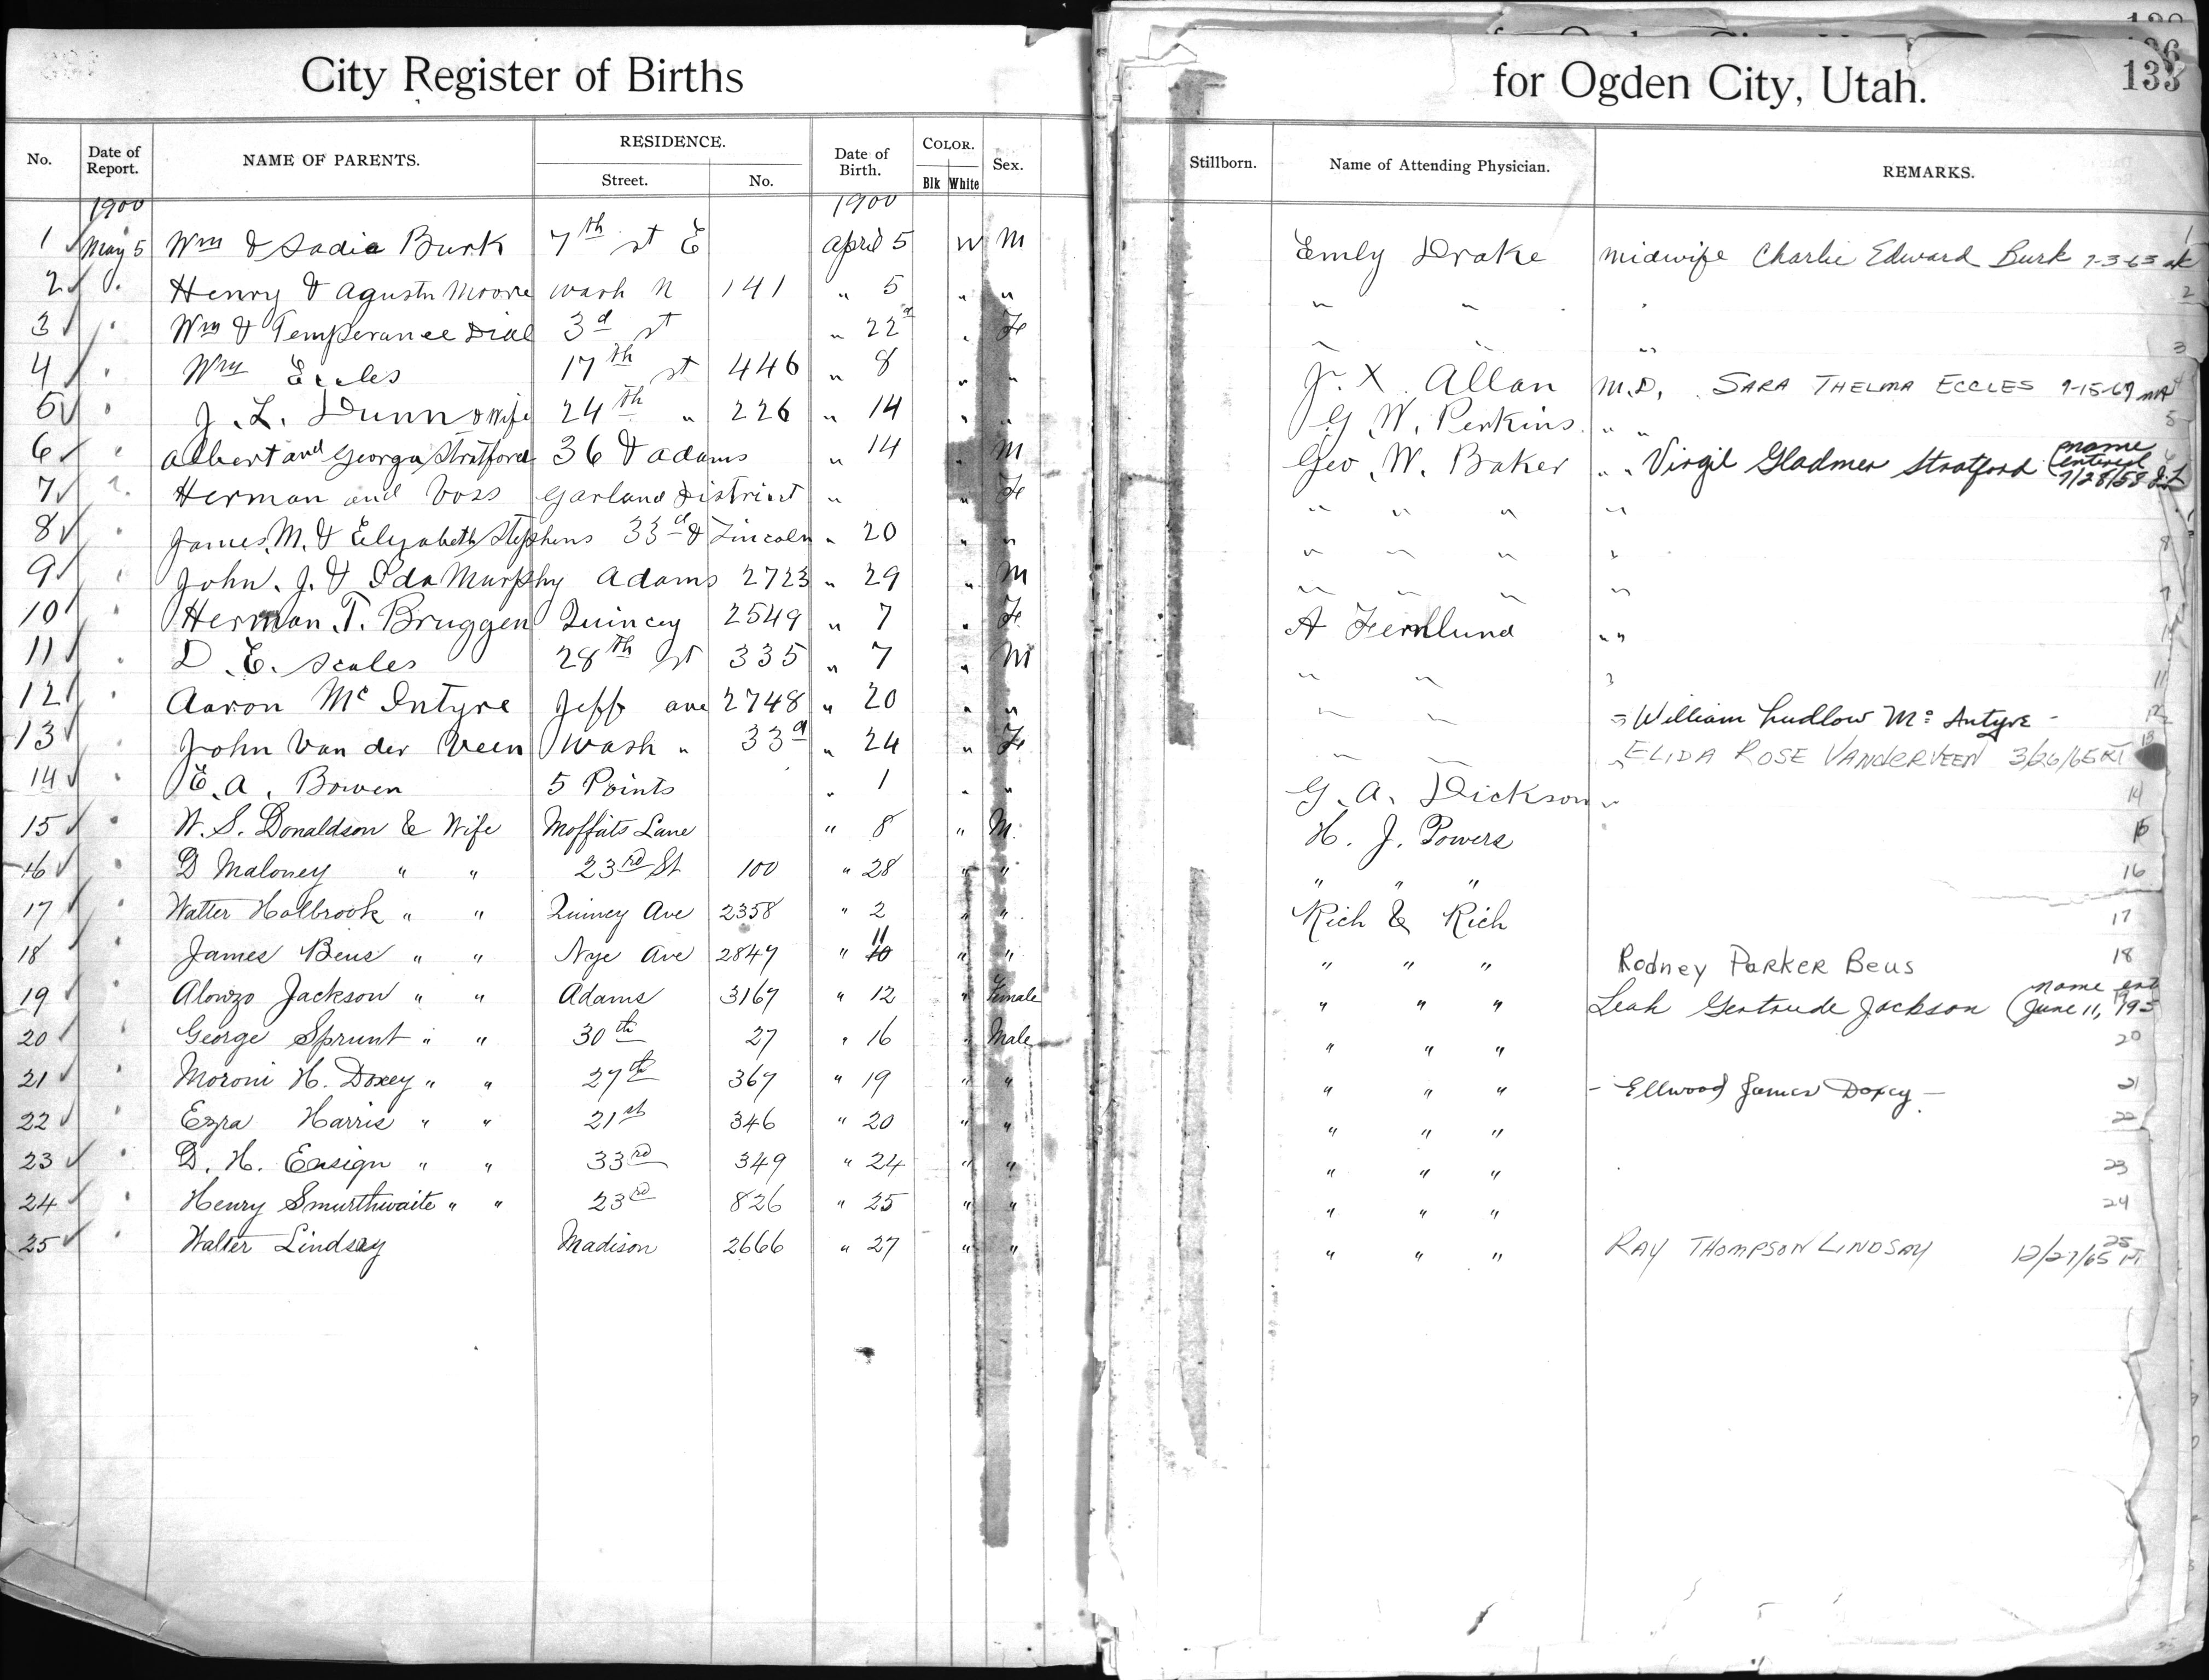 City Register of Births for Ogden City, Utah. 133
No. Date of Report. NAME OF PARENTS. RESIDENCE. Street. No. Date of Birth. COLOR. Blk White Sex. Stillborn. Name of Attending Physician. REMARKS.
1900 1900
1 May 5 Wm & Sadie Burk 7th st E April 5 W M Emly Drake midwife Charlie Edward Burk 7-3-63 1
2 " Henry & Agusta Moore Wash N 141 " 5 " " " " " 2
3 " Wm & Temperance Dial 3d st " 22d " Fe " " " 3
4 " Wm Eccles 17th st 446 " 8 " " J. X. Allan M.D. SARA THELMA ECCLES 9-15-67 4
5 " J. L. Dunn & Wife 24th " 226 " 14 " " G. W. Perkins " " 5
6 " Albert and Georgia Stratford 36 & Adams " 14 " M Geo. W. Baker " " Virgil Gladmer Stratford (name entered 7/28/58
7 " Herman and Voss Garland District " " Fe " " " "
8 " James. M. & Elizabeth Stephens 33d & Lincoln " 20 " " " " " " 8
9 " John. J. & Ida Murphy Adams 2723 " 29 " M " " " "
10 " Herman. T. Bruggen Quincey 2549 " 7 " Fe A Fernlund " "
11 " D. E. Scales 28th st 335 " 7 " M " " " 11
12 " Aaron McIntyre Jeff ave 2748 " 20 " " " " " William Ludlow Mc Intyre - 12
13 " John Van der Veen Wash " 33d " 24 " Fe " " " ELIDA ROSE VANDERVEEN 3/26/65 RT 13
14 " E. A. Bowen 5 Points " 1 " " G. A. Dickson " 14
15 " W. S. Donaldson & Wife Moffats Lane " 8 " M. H. J. Powers 15
16 " D Maloney " " 23rd St 100 " 28 " " " " " 16
17 " Walter Holbrook " " Quincy Ave 2358 " 2 " " Rich & Rich 17
18 " James Beus " " Nye Ave 2847 " 10 11 " " " " " Rodney PARKER Beus 18
19 " Alonzo Jackson " " Adams 3167 " 12 " Female " " " Leah Gertrude Jackson (name ent June 11, 195 19
20 " George Sprunt " " 30th 27 " 16 " Male " " " 20
21 " Moroni H. Doxey " " 27th 367 " 19 " " " " " - Ellwood James Doxey - 21
22 " Ezra Harris " " 21st 346 " 20 " " " " " 22
23 " D. H. Ensign " " 33rd 349 " 24 " " " " " 23
24 " Henry Smurthwaite " " 23rd 826 " 25 " " " " " 24
25 " Walter Lindsay Madison 2666 " 27 " " " " " RAY THOMPSON LINDSAY 12/27/65 RT 25